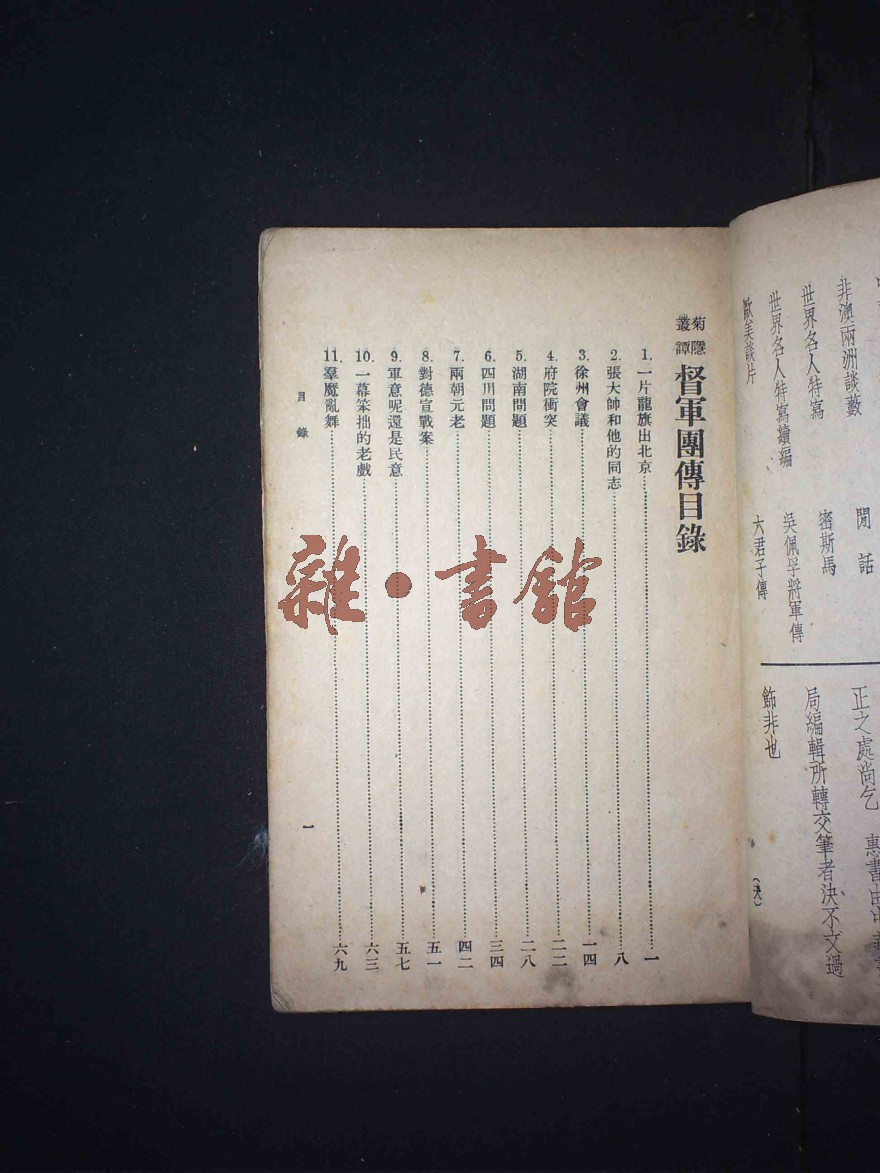 非澳兩洲談藪
世界名人特寫
世界名人特寫續編
歐美談片
閒話
密斯馬
吳佩孚將軍傳
六君子傳
正之處尚乞 惠書由中華書
局編輯所轉交筆者決不文過
飾非也
(六)
菊隱叢譚 督軍團傳目錄
1.一片龍旗出北京……一
2.張大帥和他的同志……八
3.徐州會議……一四
4.府院衝突……二二
5.湖南問題……二八
6.四川問題……三四
7.兩朝元老……四二
8.對德宣戰案……五一
9.軍意呢還是民意……五七
10.一幕笨拙的老戲……六三
11.羣魔亂舞……六九
目錄
一
雜·書館